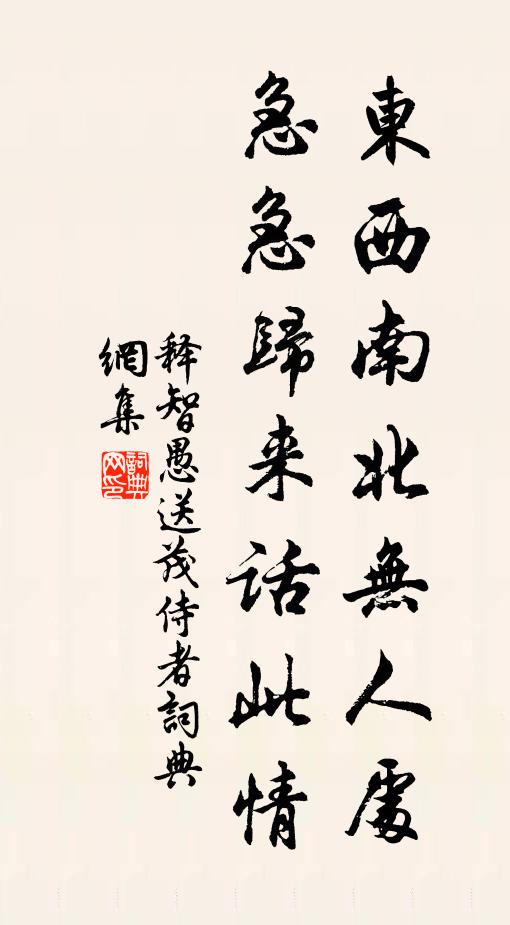 東西南北無人處
急急歸来話此情
释智愚送茂侍者詞典
網集
詞典網印